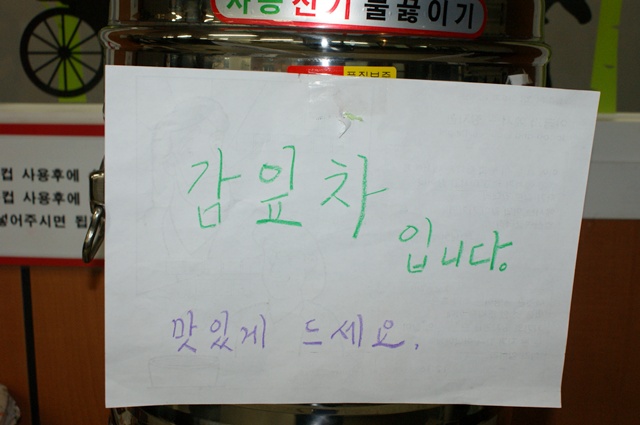 자동전기물끓이기
품질보증
컵 사용후에
컵 사용후에
넣어주시면 됩
감잎차
입니다.
맛있게 드세요.